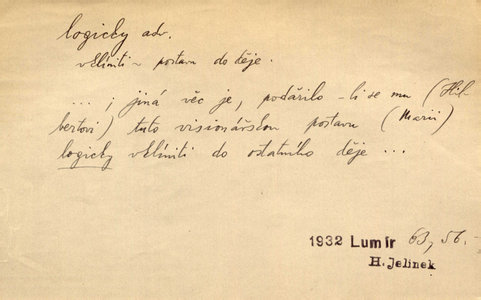 logicky adv.
vklíniti ~ postavu do děje.
... ; jiná věc je, podařilo-li se mu (Hil-
bertovi) tuto visionářskou postavu (Marii)
logicky vklíniti do ostatního děje ...
1932 Lumír 63, 56.-
H. Jelínek